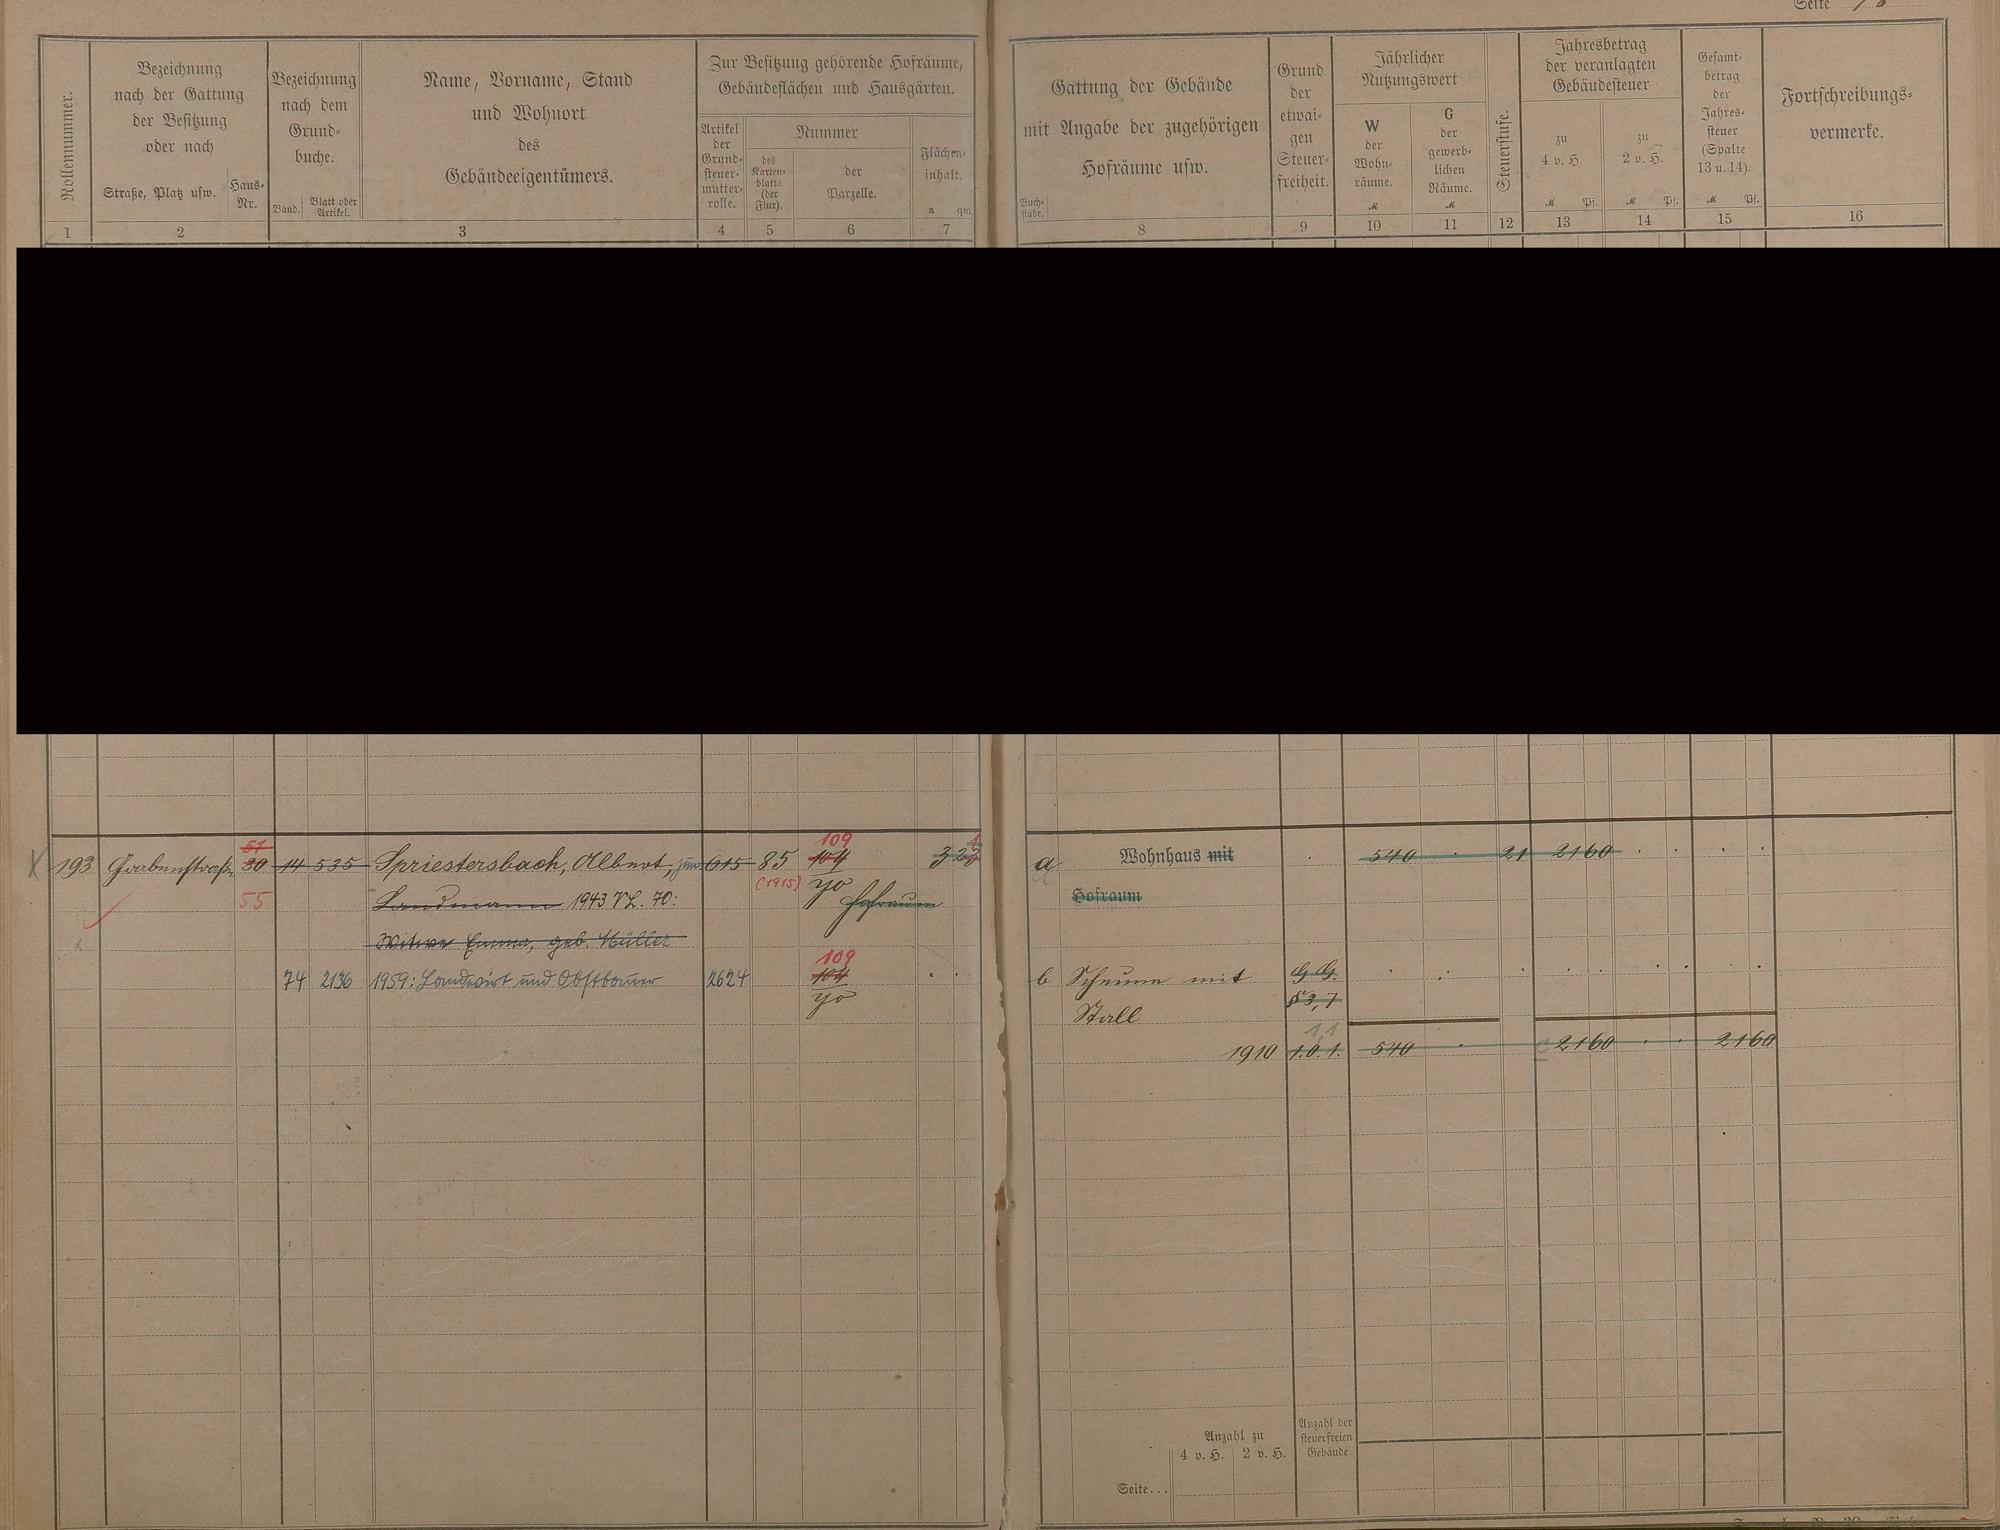 Seite
Rollennummer.
Bezeichnung
nach der Gattung
der Besitzung
oder nach
Straße, Platz usw.
Haus-
Nr.
Bezeichnung
nach dem
Grund-
buche.
Band.
Blatt oder
Artikel.
Name, Vorname, Stand
und Wohnort
des
Gebäudeeigentümers.
Zur Besitzung gehörende Hofräume,
Gebäudeflächen und Hausgärten.
Artikel
der
Grund-
steuer-
mutter-
rolle.
Nummer
des
Karten-
blatts
(der
Flur).
der
Parzelle.
Flächen-
inhalt.
a qm
1 2 3 4 5 6 7
Gattung der Gebäude
mit Angabe der zugehörigen
Hofräume usw.
Buch-
stabe.
Grund
der
etwai-
gen
Steuer-
freiheit.
Jährlicher
Nutzungswert
W
der
Wohn-
räume.
M
G
der
gewerb-
lichen
Räume.
M
Steuerstufe.
Jahresbetrag
der veranlagten
Gebäudesteuer
zu
4 v. H.
M Pf.
zu
2 v. H.
M Pf.
Gesamt-
betrag
der
Jahres-
steuer
(Spalte
13 u. 14).
M Pf.
Fortschreibungs-
vermerke.
8 9 10 11 12 13 14 15 16
51 109 1
193 Grabenstraße 30 14 535 Spriestersbach, Albert, jun. 615 85 104 3 23
55 Landmann 1943 VL. 70: (1915) 70 Hofraum
Witwe Emma, geb. Müller
109
74 2136 1959: Landwirt und Obstbauer 2624 104
70
a Wohnhaus mit 540 21 21 60
Hofraum
b Scheune mit G.G.
Stall § 3,7
1,1
1910 1.0.1. 540 21 60 21 60
Anzahl zu
4 v. H. 2 v. H.
Anzahl der
steuerfreien
Gebäude
Seite...